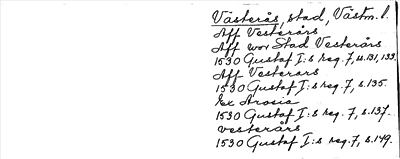 Västerås, stad, Västm. l.
Aff Vesterårs
Aff wor Stad Vesterårs
1530 Gustaf I:s reg. 7, s. 131, 133.
Aff Vesterars
1530 Gustaf I:s reg. 7, s. 135.
Ex Arosia
1530 Gustaf I:s reg. 7, s. 137.
vesterårs
1530 Gustaf I:s reg. 7, s. 149.